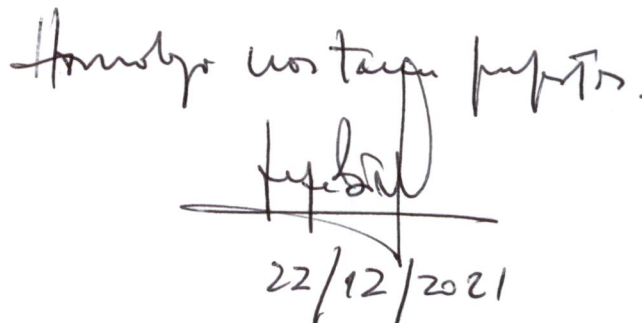 Homologo nos termos propostos.
22/12/2021